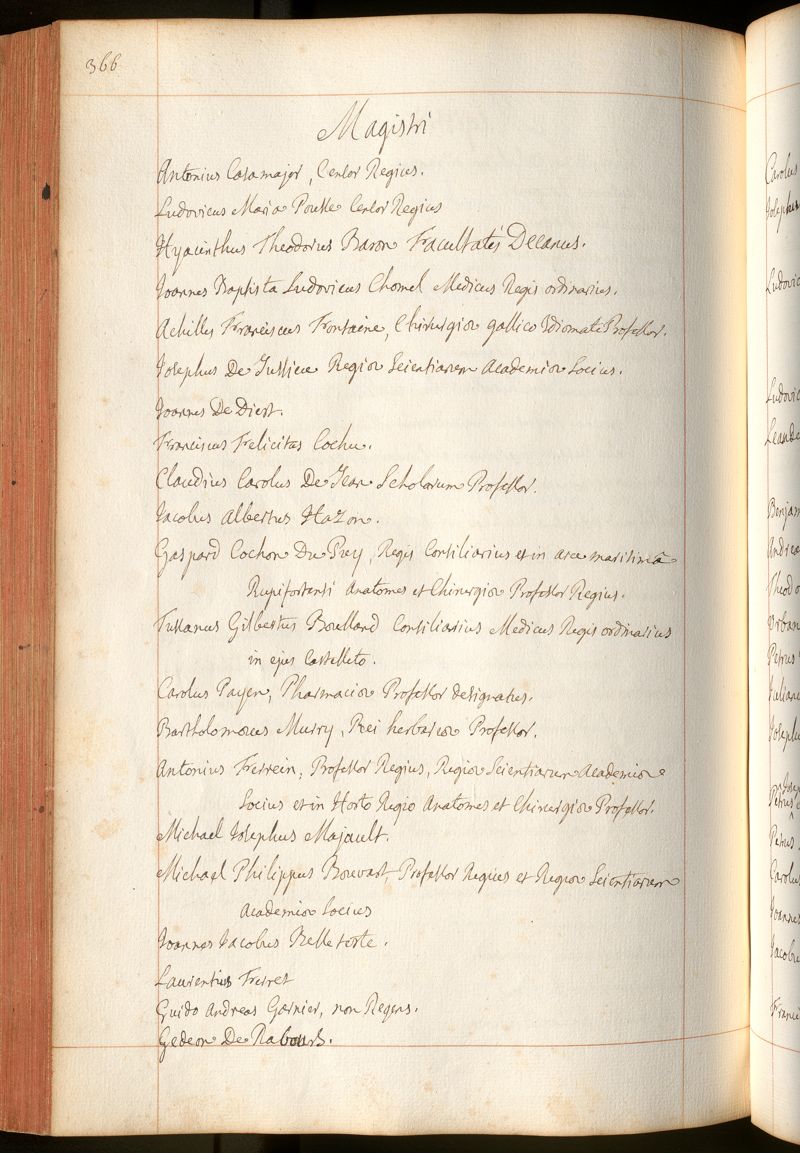 366
Magistri
Antonius Casamajor, Censor Regius.
Ludovicus Maria Pousse Censor Regius
Hyacinthus Theodorus Baron Facultatis Decanus.
Joannes Baptista Ludovicus Chomel Medicus Regis ordinarius.
Achilles Franciscus Fontaine, Chirurgiæ gallico Idiomate Professor.
Josephus De Jussieu Regiæ Scientiarum Academiæ Socius.
Joannes De Diest.
Franciscus Felicitas Cochu.
Claudius Carolus De Jean Scholarum Professor.
Jacobus Albertus Hazon.
Gaspard Cochon Du Puy, Regis Consiliarius et in arce maritimâ
Rupifortensi Anatomes et Chirurgiæ Professor Regius.
Tussanus Gilbertus Boulland Consiliarius Medicus Regis ordinarius
in ejus Castelleto.
Carolus Payen, Pharmaciæ Professor designatus.
Bartholomæus Murry, Rei herbariæ Professor.
Antonius Ferrein, Professor Regius, Regiæ Scientiarum Academiæ
Socius et in Horto Regio Anatomes et Chirurgiæ Professor.
Michael Josephus Majault.
Michael Philippus Bouvart, Professor Regius et Regiæ Scientiarum
Academiæ Socius
Joannes Jacobus Belleteste.
Laurentius Ferret
Guido Andreas Garnier, non Regens.
Gedeon De Rabours.
Carolus
Josephus
Ludovic
Ludovic
Leand
Benjam
Andrea
Theodo
Urban
Petrus
Julian
Joseph
Petrus
Petrus
Carolus
Joannes
Jacobu
Franci